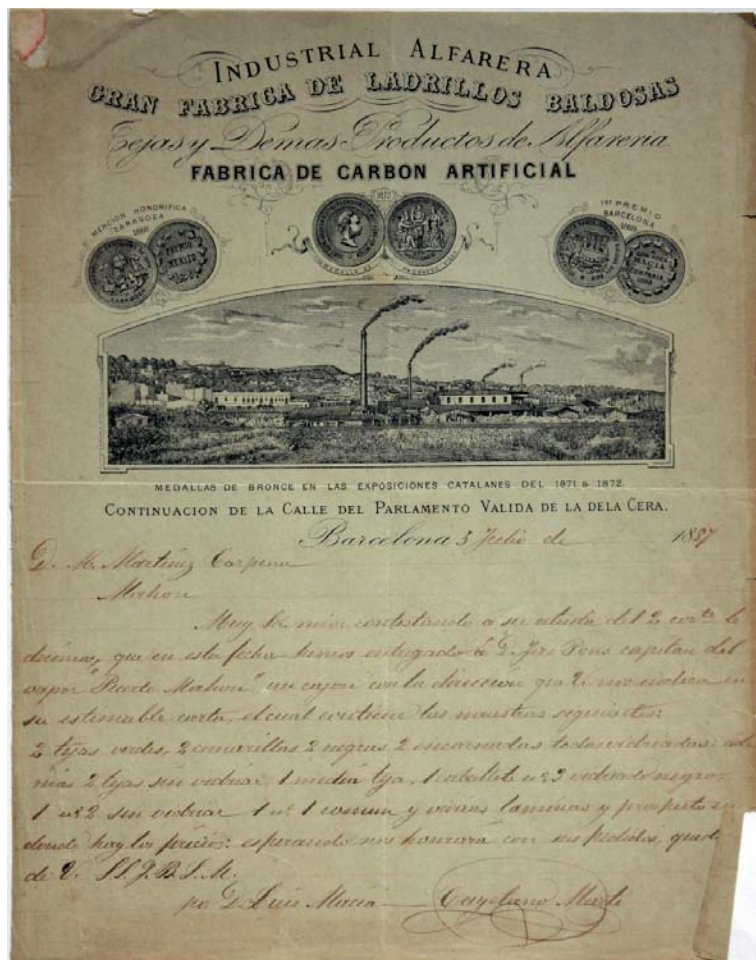 INDUSTRIAL ALFARERA
GRAN FABRICA DE LADRILLOS BALDOSAS
Tejas y Demas Productos de Alfareria
FABRICA DE CARBON ARTIFICIAL
MENCION HONORIFICA
ZARAGOZA
1868
PREMIO
MERITO
ZARAGOZA
1873
MEDALLA DE
1er PREMIO
BARCELONA
MACIA
COMPAÑIA
MEDALLAS DE BRONCE EN LAS EXPOSICIONES CATALANES DEL 1871 & 1872
CONTINUACION DE LA CALLE DEL PARLAMENTO VALIDA DE LA DELA CERA.
Barcelona 3 Julio de 1887
D. M. Martinez Carpena
Mahon
Muy Sr. mio: contestando a su atenta del 2 corte le
decimos, que en esta fecha hemos entregado á D. José Pons capitan del
vapor "Puerto Mahon" un cajon con la direccion que V. nos indica en
su estimable carta, el cual contiene las muestras siguientes:
2 tejas verdes, 2 amarillas 2 negras 2 encarnadas todas vidriadas: ade
mas 2 tejas sin vidriar, 1 media teja, 1 caballete nº 3 vidriado negro
1 nº 2 sin vidriar 1 nº 1 comun y varias laminas y prospecto en
donde hay los precios: esperando nos honrará con sus pedidos, queda
de V. S.S.Q.B.S.M.
por D. Luis Macia Cayetano Marti